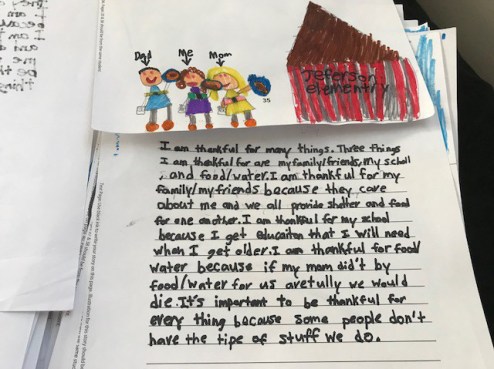 Dad
Me
Mom
35
Jeferson
elementry
I am thankful for many things. Three things
I am thankful for are my family/friends, my scholl
, and food/water. I am thankful for my
family/my friends because they care
about me and we all provide shelter and food
for one another. I am thankful for my school
because I get educaiton that I will need
when I get older. I am thankful for food/
water because if my mom did't by
food/water for us avetully we would
die. It's important to be thankful for
every thing because some people don't
have the tipe of stuff we do.